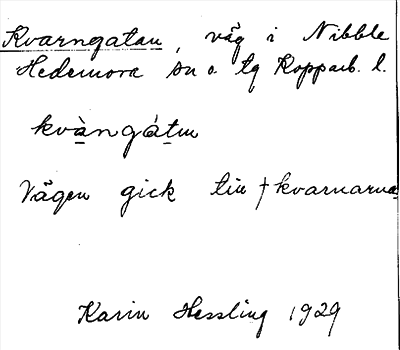 Kvarngatan, väg i Nibble
Hedemora sn o. tg Kopparb. l.
kvàngátɯn
Vägen gick till † kvarnarna
Karin Hessling 1929